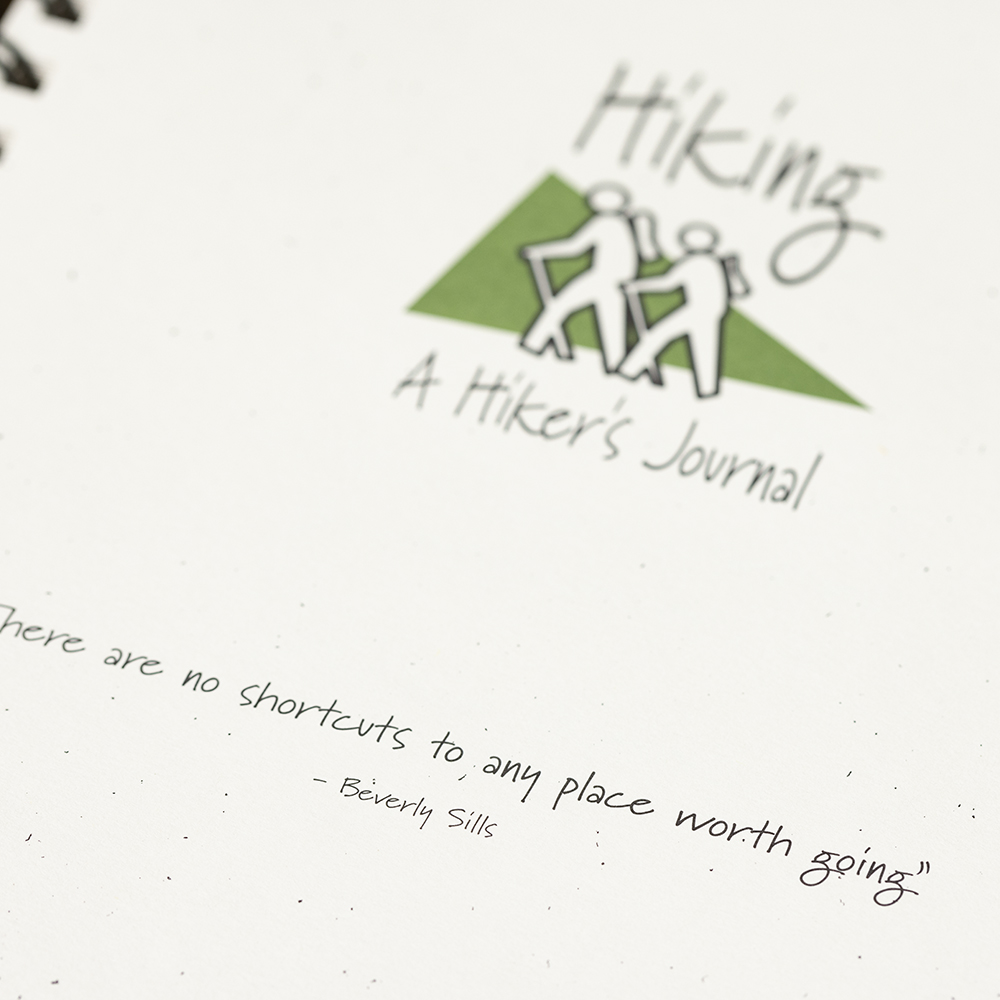 Hiking
A Hiker's Journal
There are no shortcuts to any place worth going”
- Beverly Sills